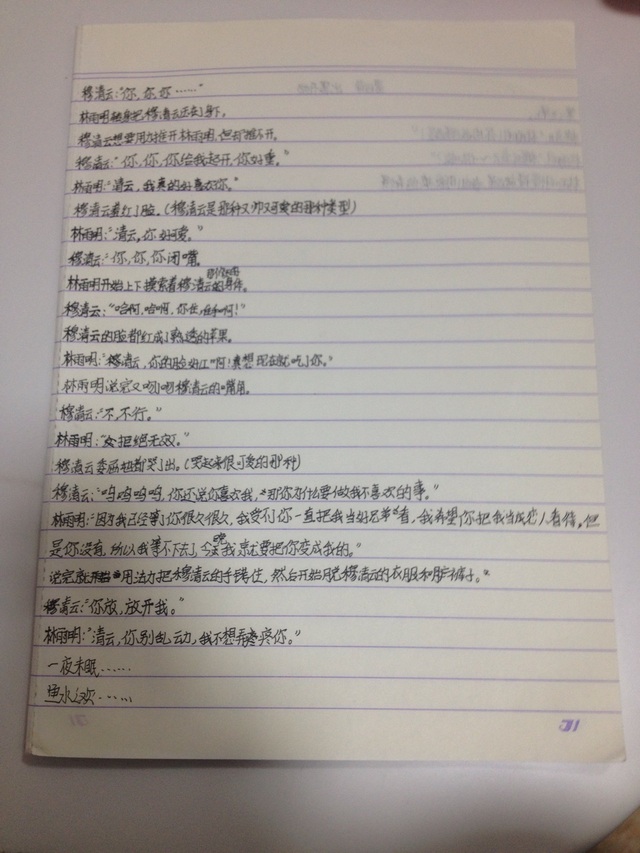 穆清云:"你,你,你……"
林雨明翻身把穆清云压在身下。
穆清云想要用力推开林雨明,但却推不开。
穆清云:"你,你,你给我起开,你好重。"
林雨明:"清云,我真的好喜欢你。"
穆清云羞红了脸。(穆清云是那种又帅又可爱的那种类型)
林雨明:"清云,你好可爱。"
穆清云:"你,你,你闭嘴。
林雨明开始上下摸索着穆清云的身体。
穆清云:"哈啊,哈啊,你住,住手啊!"
穆清云的脸都红成了熟透的苹果。
林雨明:"穆清云,你的脸好红啊!真想现在就吃了你。"
林雨明说完又吻吻穆清云的嘴角。
穆清云:"不,不行。"
林雨明:"拒绝无效。"
穆清云委屈的都哭了出。(哭起来很可爱的那种)
穆清云:"呜呜呜呜,你还说你喜欢我,那你为什么要做我不喜欢的事。"
林雨明:"因为我已经等了你很久很久,我受不了你一直把我当好兄弟看,我希望你把我当成恋人看待,但
是你没有,所以我等不下去了,今晚我就要把你变成我的。
说完就用法力把穆清云的手锁住,然后开始脱穆清云的衣服和裤子。"
穆清云:"你放,放开我。"
林雨明:"清云,你别乱动,我不想弄疼你。"
一夜未眠……
鱼水之欢……